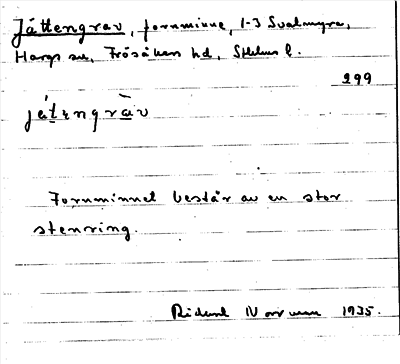 Jättengrav, fornminne, 1-3 Svalmyra,
Hargs sn, Frösåkers hd, Sthlms l.
299
játengràv
Fornminnet består av en stor
stenring.
Rickard Norrman 1935.